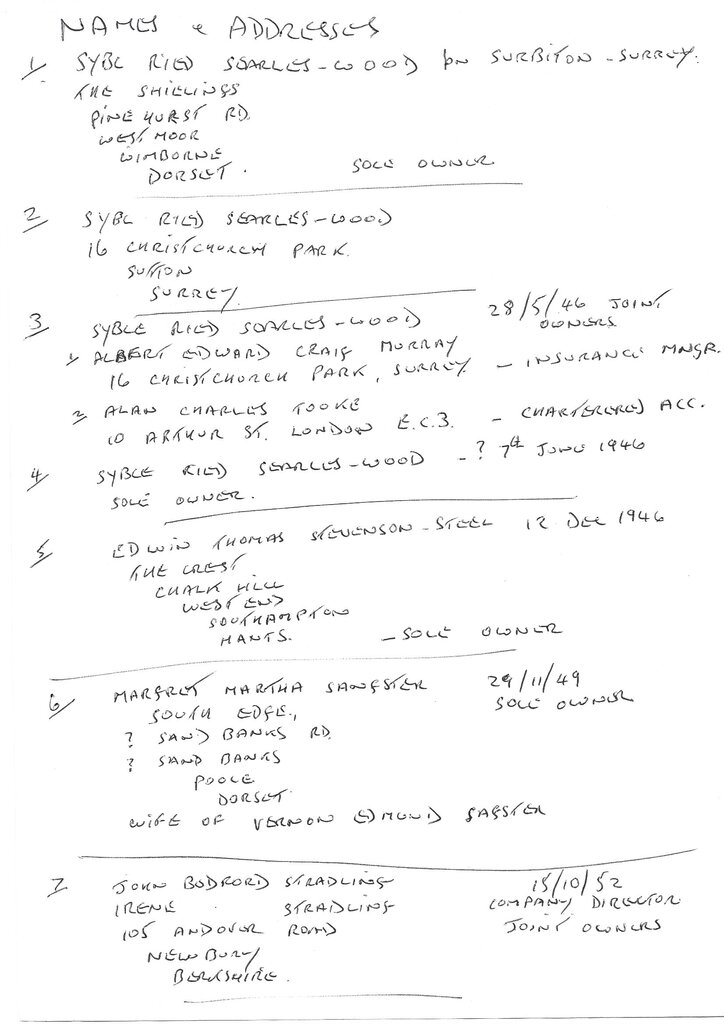 NAMES & ADDRESSES
1/ SYBL RIED SEARLES-WOOD SURBITON - SURREY.
THE SHIELINGS
PINEHURST RD.
WEST MOOR
WIMBORNE
DORSET. SOLE OWNER
2/ SYBL RIED SEARLES-WOOD
16 CHRISTCHURCH PARK.
SUTTON
SURREY.
3/ SYBLE RIED SEARLES-WOOD 28/5/46 JOINT OWNERS
1/ ALBERT EDWARD CRAIG MURRAY
16 CHRISTCHURCH PARK, SURREY - INSURANCE MNGR.
2/ ALAN CHARLES TOOKE
10 ARTHUR ST. LONDON E.C.3. - CHARTERERED ACC.
4/ SYBLE RIED SEARLES-WOOD - ? 7th JUNE 1946
SOLE OWNER.
5/ EDWIN THOMAS STEVENSON-STEEL 12 DEC 1946
THE CREST
CHALK HILL
WEST END
SOUTHAMPTON
HANTS. - SOLE OWNER
6/ MARGRET MARTHA SANGSTER 29/11/49
SOUTH EDGE, SOLE OWNER
? SAND BANKS RD.
? SAND BANKS
POOLE
DORSET.
WIFE OF VERNON EDMUND SAGSTER
7/ JOHN BODFORD STRADLING 15/10/52
IRENE STRADLING COMPANY DIRECTOR
105 ANDOVER ROAD JOINT OWNERS
NEWBURY
BERKSHIRE.